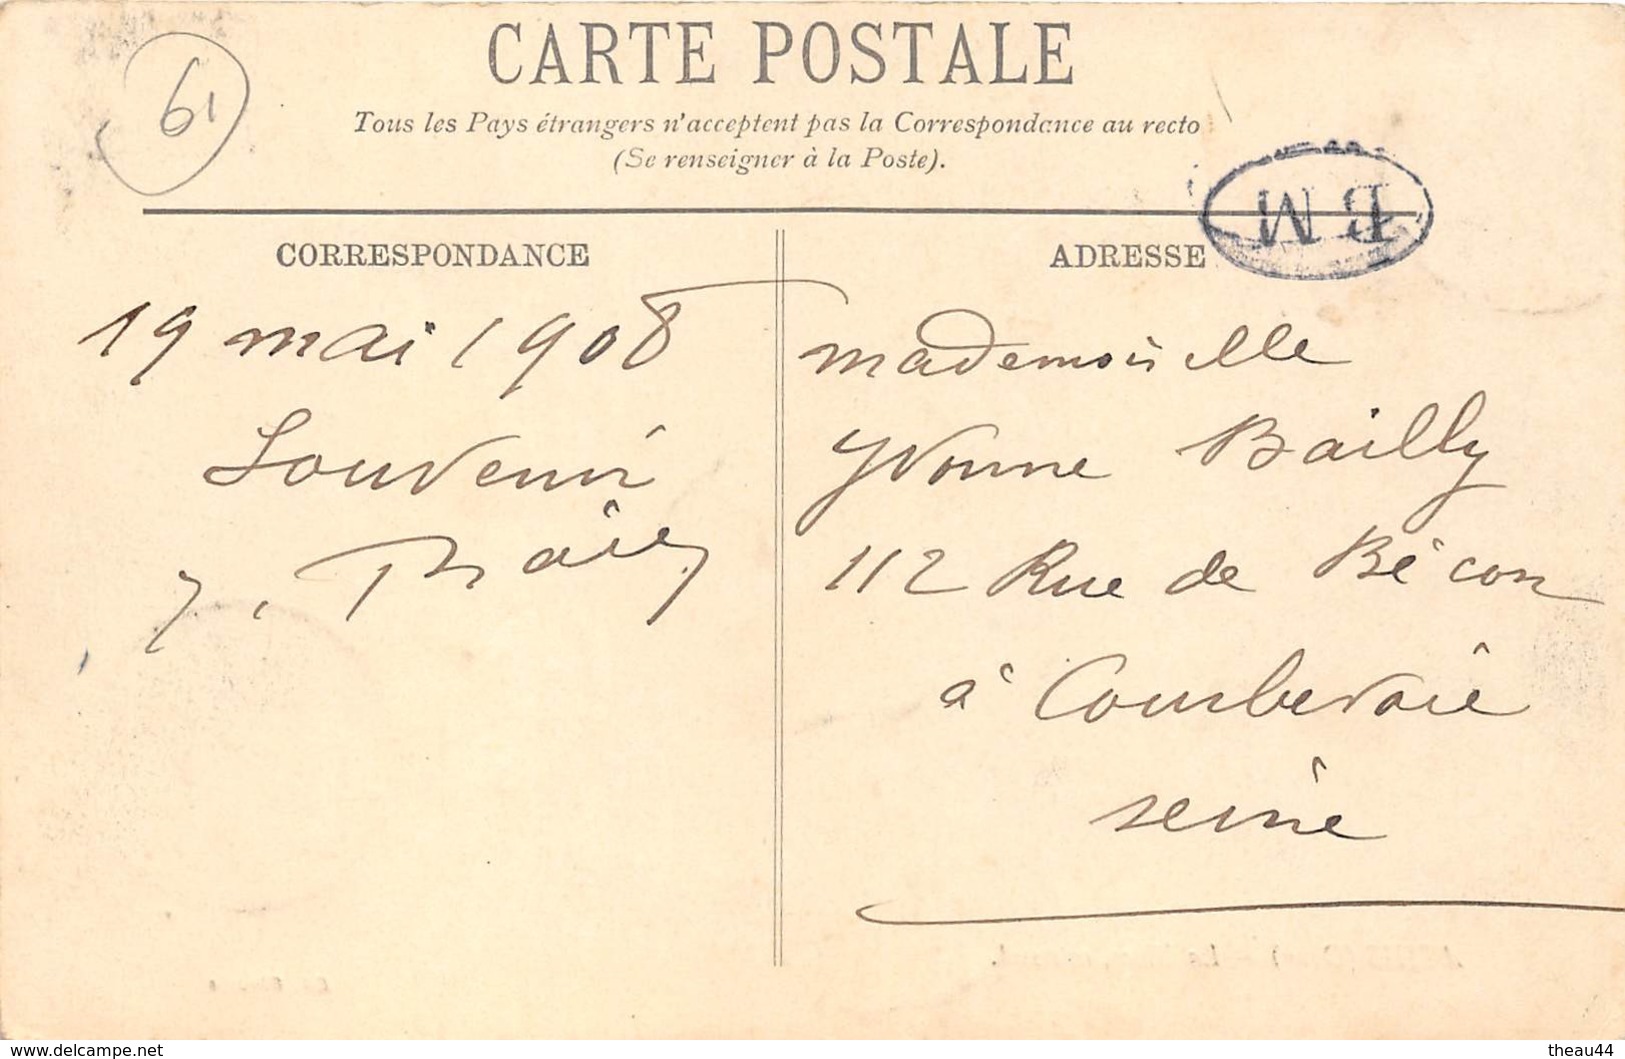 61
CARTE POSTALE
Tous les Pays étrangers n'acceptent pas la Correspondance au recto
(Se renseigner à la Poste).
BM
CORRESPONDANCE
ADRESSE
19 mai 1908
Souvenir
mademoiselle
Yvonne Bailly
112 Rue de Bécon
à Courbevoie
seine
www.delcampe.net
theau44